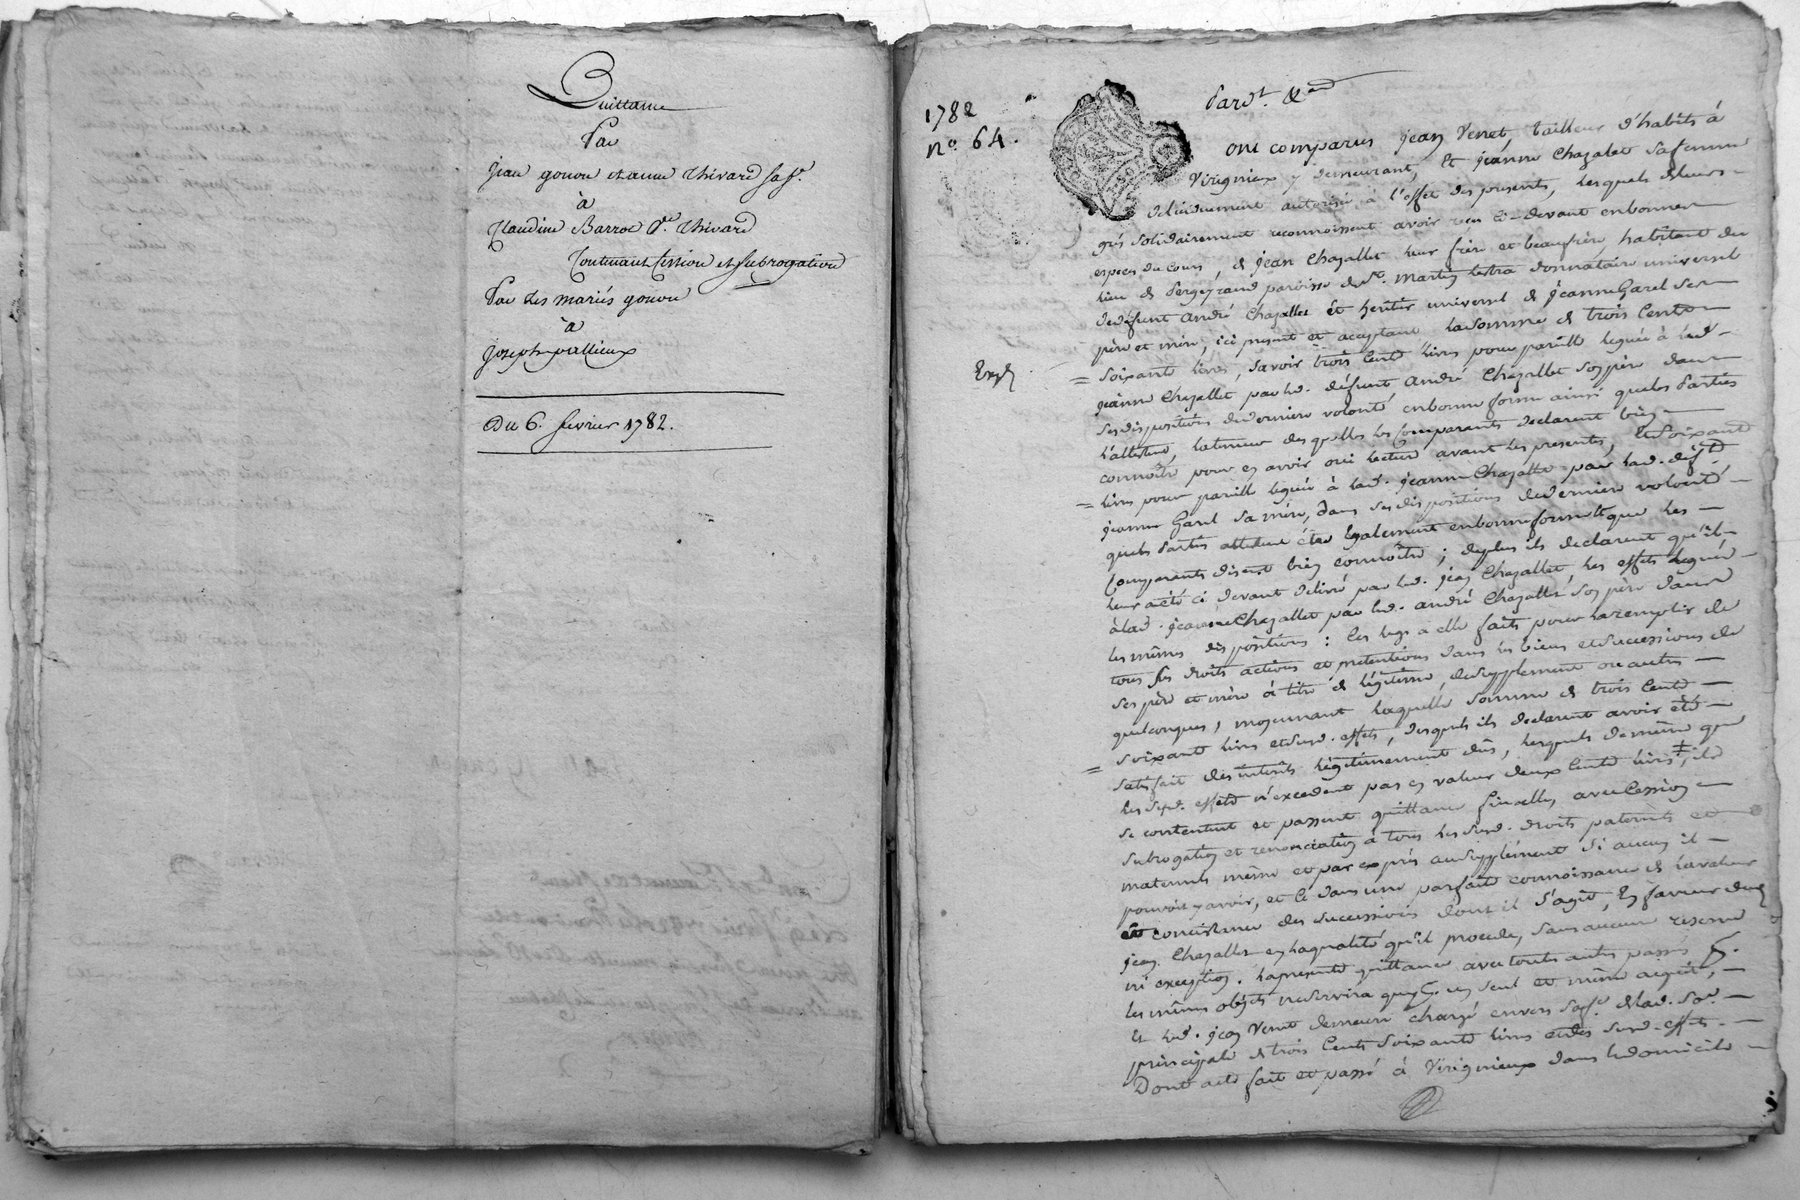 Quittance
Par
Jean gouon et anne Chivard sa fe.
à
Claudine Barrot Ve. Chivard
Contenant Cession et subrogation
Par les mariés gouon
à
joseph
Du 6. fevrier 1782.
1782
n.o 64.
Pard.t
ont comparus jean Venet tailleur d'habits à
Virignieux y demeurant, Et jeanne Chazallet sa femme
de lui duement autorisée à l'effet des presents, lesquels de leurs
grés solidairement reconnoissent avoir reçu ci-devant en bonnes
especes du cours, de jean Chazallet leur frère et beaufrère habitant du
lieu de Sergeyraud paroisse de St. martin lestra donnataire universel
de defunt andré Chazallet et heritier universel de jeanne Garel ses
père et mère, ici present et acceptant la somme de trois Cents
Exp.
= soixante livres, savoir trois Cents livres pour pareille leguée à lad.
jeanne Chazallet par led. défunt andré Chazallet son père dans
ses dispositions de derniere volonté en bonne forme ainsi que les parties
l'attestent, la teneur des quelles les Comparants declarent bien
connoitre pour en avoir oui lecture avant les presentes, Et Soixante
= livres pour pareille leguée à lad. jeanne Chazallet par lad. déf.te
jeanne Garel sa mère, dans ses dispositions de derniere volonté
que les Parties attestent être Egalement en bonne forme et que les
Comparants disent bien connoitre; de plus ils declarent qu'il
leur a été ci devant delivré par led. jean Chazallet les effets legués
à lad. jeanne Chazallet par led. andré Chazallet son père dans
les mêmes dispositions: les legs à elle faits pour la remplir de
tous ses droits actions et pretentions dans les biens et successions de
ses père et mère à titre de légitime, de supplement ou autres
quelconques, moyennant laquelle somme de trois Cents
= soixante livres et susd. effets, desquels ils declarent avoir été
satisfait des interets légitimement dûs, lesquels de même que
les susd. effets n'excedent pas en valeur deux Cents livres, ils
se contentent et passent quittance finalle, avec Cession
subrogation et renonciation à tous les susd. droits paternels et
maternels même et par exprès au supplément si aucun il
pouvoit y avoir, et ce dans une parfaite connoissance de la valeur
et consistance des successions dont il s'agit, En faveur dud.
jean Chazallet en la qualité qu'il procede, sans aucune reserve
ni exception. la presente quittance avec toutes autres passés
les mêmes objets ne servira que d'un seul et même acquit,
Et led. jean Venet demeure chargé envers sa fe. de lad. so.e
principale de trois Cents Soixante livres et des susd. effets.
Dont acte fait et passé à Virignieux dans le domicile